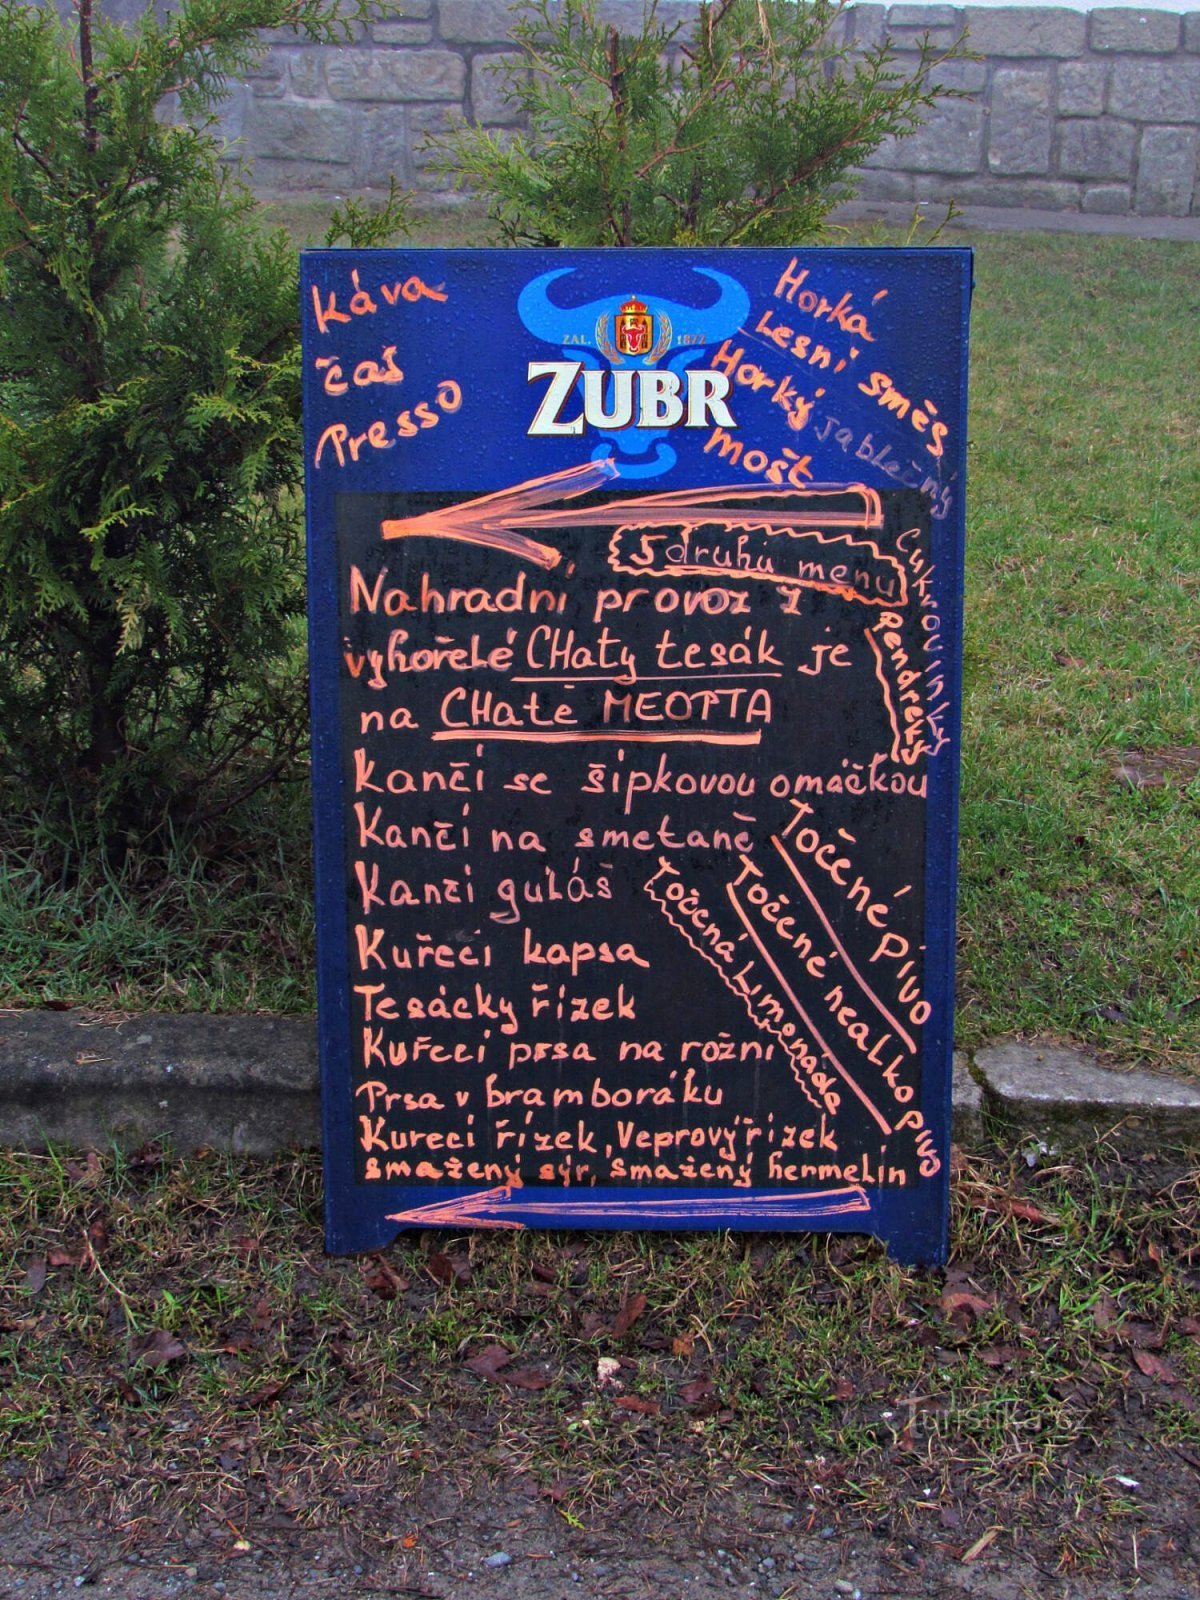 Káva
čaš
Presso
ZAL. 1872
ZUBR
Horká
Lesní směs
Horký jablečný
mošt
5 druhů menu
Cuknovinky
Pendreky
Nahradní provoz z
vyhořelé CHaty tesák je
na CHatě MEOPTA
Kančí se šípkovou omáčkou
Kančí na smetaně
Kanči guláš
Kuřecí kapsa
Tesácky řízek
Kuřecí prsa na rožni
Prsa v bramboráku
Kureci řízek, Veprový řizek
smažený sýr, smažený hermelín
Točené pivo
Točené nealko pivo
Točená Limonáda
Turistika.cz